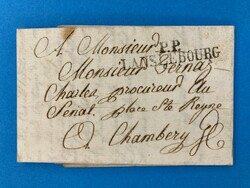 A Monsieur
P.P.
LANSLEBOURG
Monsieur Pernaz
Charles procureur du
Senat. place Ste Reyne
A Chambery